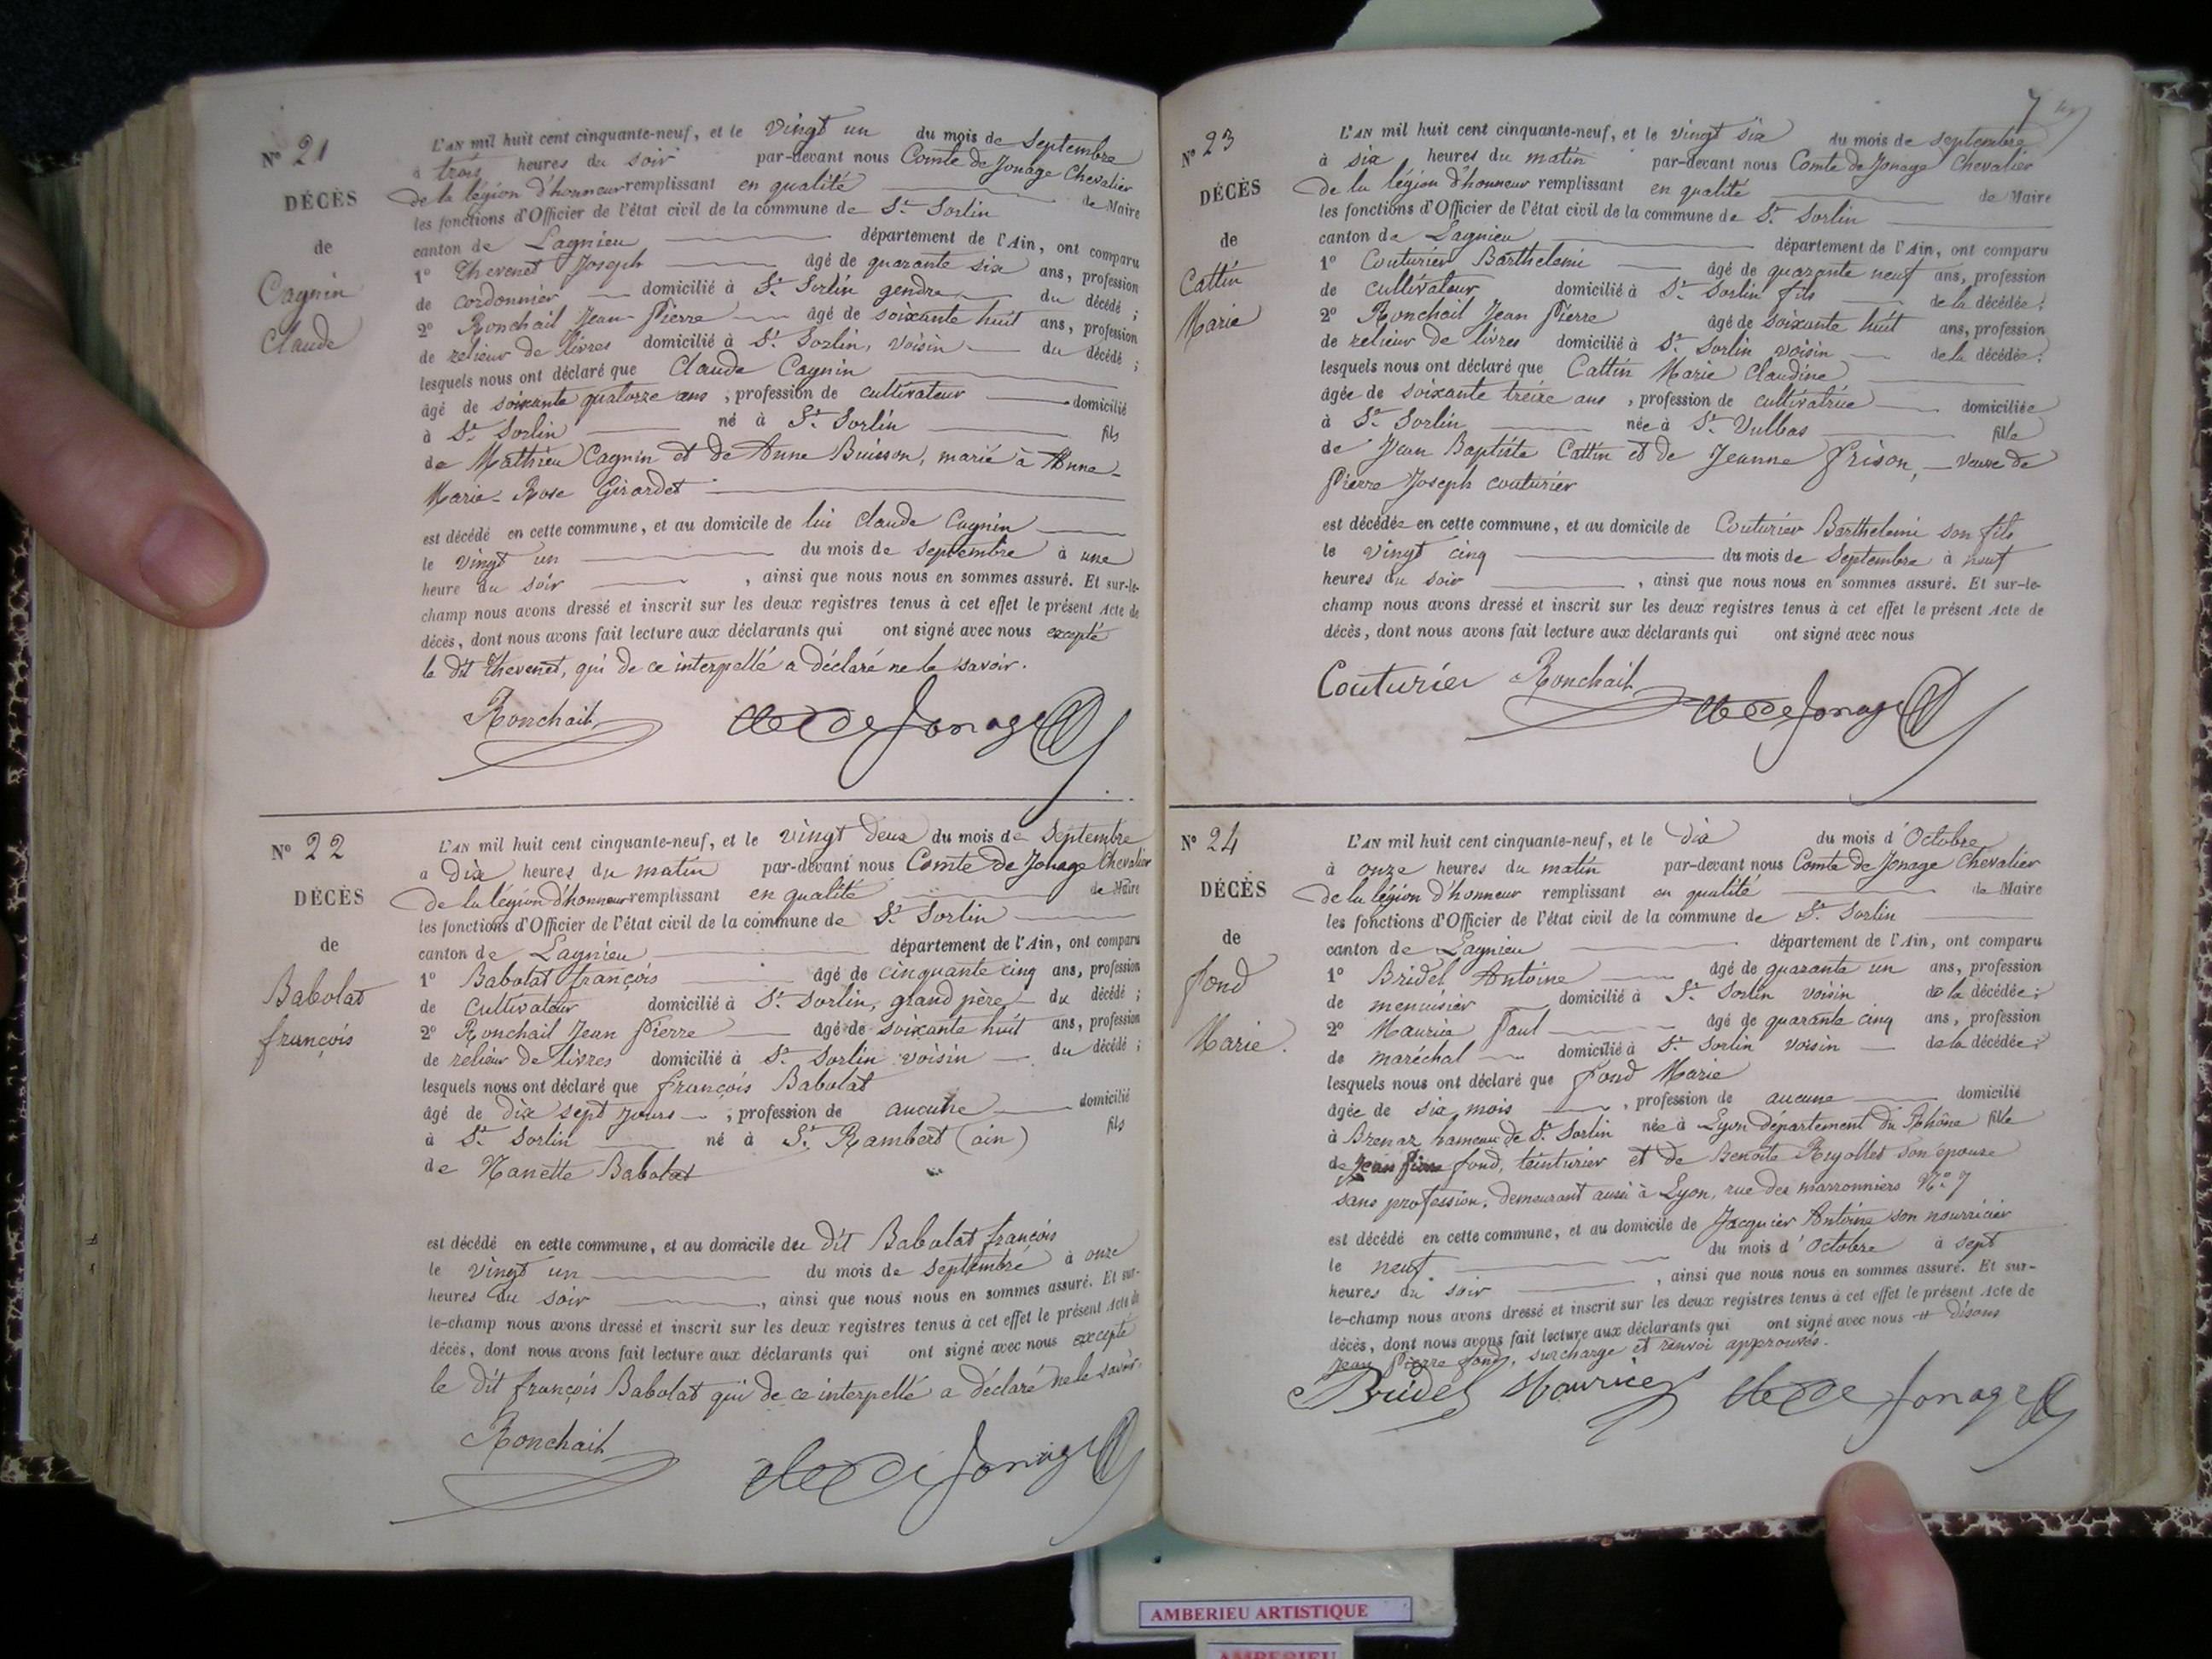 N° 21
DÉCÈS
de
Cagnin
Claude
L'AN mil huit cent cinquante-neuf, et le vingt un du mois de septembre
à trois heures du soir par-devant nous Comte de Jonage Chevalier
de la légion d'honneur remplissant en qualité de Maire
les fonctions d'Officier de l'état civil de la commune de St. Sorlin
canton de Lagnieu département de l'Ain, ont comparu
1° Thevenet Joseph âgé de quarante six ans, profession
de cordonnier domicilié à St. Sorlin gendre du décédé ;
2° Ronchail Jean Pierre âgé de soixante huit ans, profession
de relieur de livres domicilié à St. Sorlin, voisin du décédé ;
lesquels nous ont déclaré que Claude Cagnin
âgé de soixante quatorze ans ; profession de cultivateur domicilié
à St. Sorlin né à St. Sorlin fils
de Mathieu Cagnin et de Anne Buisson, marié à Anne-
Marie-Rose Girardet
est décédé en cette commune, et au domicile de lui Claude Cagnin
le vingt un du mois de septembre à une
heure du soir , ainsi que nous nous en sommes assuré. Et sur-le-
champ nous avons dressé et inscrit sur les deux registres tenus à cet effet le présent Acte de
décès, dont nous avons fait lecture aux déclarants qui ont signé avec nous excepté
le dit Thevenet, qui de ce interpellé a déclaré ne le savoir.
Ronchail Cte de Jonage
N° 22
DÉCÈS
de
Babolat
françois
L'AN mil huit cent cinquante-neuf, et le vingt deux du mois de Septembre
a dix heures du matin par-devant nous Comte de Jonage Chevalier
de la légion d'honneur remplissant en qualité de Maire
les fonctions d'Officier de l'état civil de la commune de St. Sorlin
canton de Lagnieu département de l'Ain, ont comparu
1° Babolat françois âgé de cinquante cinq ans, profession
de cultivateur domicilié à St. Sorlin, grand père du décédé ;
2° Ronchail Jean Pierre âgé de soixante huit ans, profession
de relieur de livres domicilié à St. Sorlin voisin du décédé ;
lesquels nous ont déclaré que françois Babolat
âgé de dix sept jours ; profession de aucune domicilié
à St. Sorlin né à St. Rambert (ain) fils
de Nanette Babolat
est décédé en cette commune, et au domicile du dit Babolat françois
le vingt un du mois de septembre à onze
heures du soir , ainsi que nous nous en sommes assuré. Et sur-
le-champ nous avons dressé et inscrit sur les deux registres tenus à cet effet le présent Acte de
décès, dont nous avons fait lecture aux déclarants qui ont signé avec nous excepté
le dit françois Babolat qui de ce interpellé a déclaré ne le savoir.
Ronchail Cte de Jonage
7
N° 23
DÉCÈS
de
Cattin
Marie
L'AN mil huit cent cinquante-neuf, et le vingt six du mois de septembre
à six heures du matin par-devant nous Comte de Jonage Chevalier
de la légion d'honneur remplissant en qualité de Maire
les fonctions d'Officier de l'état civil de la commune de St. Sorlin
canton de Lagnieu département de l'Ain, ont comparu
1° Couturier Barthelemi âgé de quarante neuf ans, profession
de cultivateur domicilié à St. Sorlin fils de la décédée ;
2° Ronchail Jean Pierre âgé de soixante huit ans, profession
de relieur de livres domicilié à St. Sorlin voisin de la décédée ;
lesquels nous ont déclaré que Cattin Marie Claudine
âgée de soixante treize ans , profession de cultivatrice domiciliée
à St. Sorlin née à St. Vulbas fille
de Jean Baptiste Cattin et de Jeanne frison, veuve de
Pierre Joseph couturier
est décédée en cette commune, et au domicile de Couturier Barthelemi son fils
le vingt cinq du mois de Septembre à neuf
heures du soir , ainsi que nous nous en sommes assuré. Et sur-le-
champ nous avons dressé et inscrit sur les deux registres tenus à cet effet le présent Acte de
décès, dont nous avons fait lecture aux déclarants qui ont signé avec nous
Couturier Ronchail Cte de Jonage
N° 24
DÉCÈS
de
fond
Marie.
L'AN mil huit cent cinquante-neuf, et le dix du mois d'Octobre
à onze heures du matin par-devant nous Comte de Jonage Chevalier
de la légion d'honneur remplissant en qualité de Maire
les fonctions d'Officier de l'état civil de la commune de St. Sorlin
canton de Lagnieu département de l'Ain, ont comparu
1° Bridel Antoine âgé de quarante un ans, profession
de menuisier domicilié à St. Sorlin voisin de la décédée ;
2° Maurice Paul âgé de quarante cinq ans, profession
de maréchal domicilié à St. Sorlin voisin de la décédée ;
lesquels nous ont déclaré que fond Marie
âgée de six mois , profession de aucune domicilié
à Brenaz hameau de St. Sorlin née à Lyon département du Rhône fille
de Jean Pierre fond, teinturier et de Benoite son épouse
sans profession, demeurant aussi à Lyon, rue des marronniers N° 7
est décédé en cette commune, et au domicile de Jacquier Antoine son nourricier
le neuf du mois d'Octobre à sept
heures du soir , ainsi que nous nous en sommes assuré. Et sur-
le-champ nous avons dressé et inscrit sur les deux registres tenus à cet effet le présent Acte de
décès, dont nous avons fait lecture aux déclarants qui ont signé avec nous # disons
Jean Pierre fond, surcharge et renvoi approuvés.
Bridel Maurice Cte de Jonage
AMBERIEU ARTISTIQUE
AMBERIEU